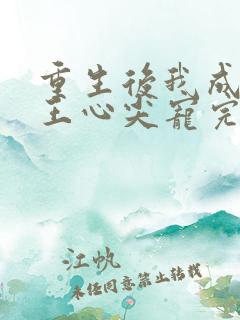 重生後我成
王心尖寵完
江帆
未经同意禁止转载